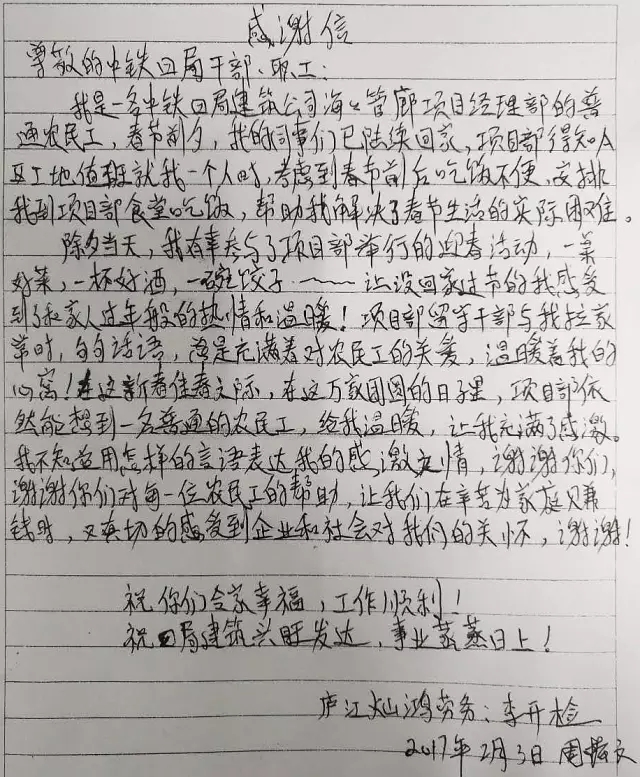 感谢信
尊敬的中铁四局干部、职工：
我是一名中铁四局建筑公司海口管廊项目经理部的普
通农民工，春节前夕，我的同事们已陆续回家，项目部得知A
区工地值班就我一个人时，考虑到春节前后吃饭不便，安排
我到项目部食堂吃饭，帮助我解决了春节生活的实际困难。
除夕当天，我有幸参与了项目部举行的迎春活动，一桌
好菜，一杯好酒，一碗饺子……让没回家过节的我感受
到了和家人过年般的热情和温暖！项目部留守干部与我拉家
常时，句句话语，总是充满着对农民工的关爱，温暖着我的
心窝！在这新春佳春之际，在这万家团圆的日子里，项目部依
然能想到一名普通的农民工，给我温暖，让我充满了感激。
我不知道用怎样的言语表达我的感激之情，谢谢你们，
谢谢你们对每一位农民工的帮助，让我们在辛苦为家庭赚
钱时，又真切的感受到企业和社会对我们的关怀，谢谢！
祝你们合家幸福，工作顺利！
祝四局建筑兴旺发达，事业蒸蒸日上！
庐江灿鸿劳务：李开检
2017年2月3日 周